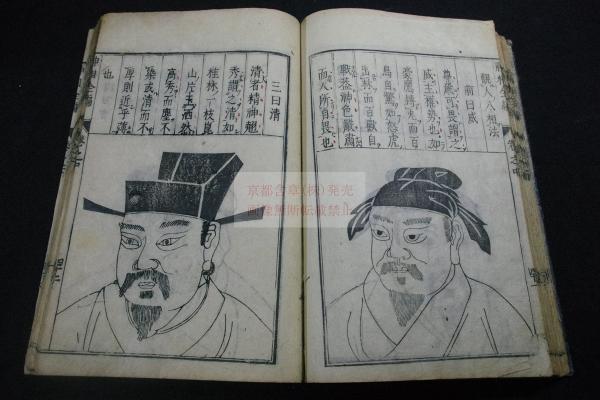 觀人八想法
一曰威
尊嚴可畏謂之
威主權勢也如
豪鷹搏兔而百
鳥自驚如怒虎
出林而百獸自
戰蓋神色嚴肅
而人所自畏也
三曰清
清者精神翹
秀謂之清如
桂林一枝崑
山片玉洒然
高秀而塵不
染或清而不
厚則近乎薄
也
京都含章(株)発売
画像無断転載禁止